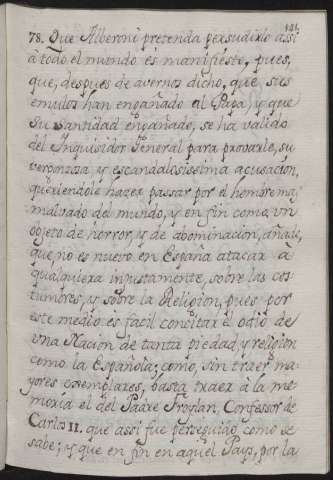 121.
78. Que Alberoni pretenda persudirlo assi
à todo el mundo es manifiesto, pues,
que, despues de avernos dicho, que sus
emulos han engañado al Papa, y que
Su Santidad engañado, se ha valido
del Inquisidor General para provarle, su
vergonzosa, y escandalosissima acusacion,
queriendole hazer passar por el hombre mas
malvado del mundo, y en fin como vn
objeto de horror, y de abominacion, añade,
que, no es nuevo en España atacar à
qualquiera injustamente, sobre las cos-
tumbres, y sobre la Religion, pues por
este medio es facil concitar el odio de
vna Nacion de tanta piedad, y religion
como la Española; como, sin traer ma-
yores exemplares, basta traer à la me-
moria el del Padre Froylan, Confessor de
Carlos II. que assi fue perseguido como se
sabe; y que en fin en aquel Pays, por la